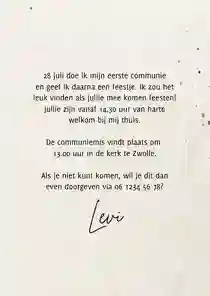 28 juli doe ik mijn eerste communie
en geef ik daarna een feestje. Ik zou het
leuk vinden als jullie mee komen feesten!
Jullie zijn vanaf 14.30 uur van harte
welkom bij mij thuis.
De communiemis vindt plaats om
13.00 uur in de kerk te Zwolle.
Als je niet kunt komen, wil je dit dan
even doorgeven via 06 1234 56 78?
Levi